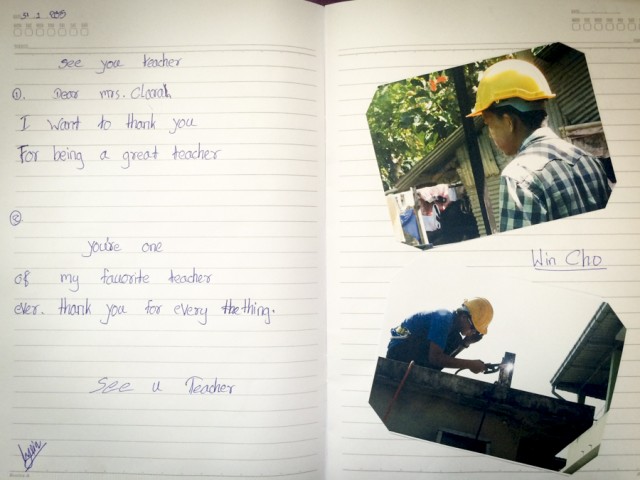 see you teacher
①. Dear mrs. Clarah
I want to thank you
For being a great teacher
②
you're one
of my favorite teacher
ever. thank you for every the thing.
See u Teacher
Win Cho